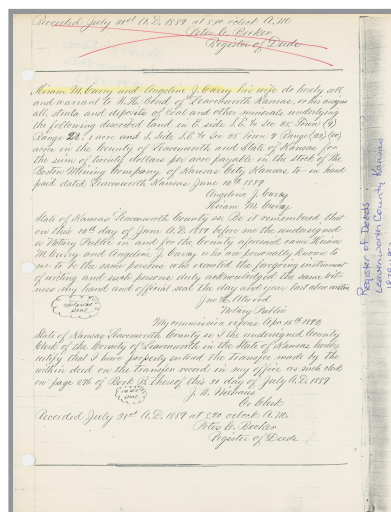 Recorded July 31st A.D. 1889 at 8.20 oclock A.M.
Peter G. Becker
Register of Deeds
Hiram M. Curry and Angeline J. Curry his wife do hereby sell
and warrant to W. H. Bond of Leavenworth Kansas, or his assigns
all, strata and deposits of Coal and other minerals underlying
the following described land in
Range 22. 1 acre and
acre in the County of Leavenworth and State of Kansas for
the sum of twenty dollars per acre payable in the stock of the
Boston Mining Company of Kansas City Kansas to in hand
paid dated Leavenworth Kansas June 10th 1889
Angeline J. Curry
Hiram M. Curry
State of Kansas Leavenworth County ss. Be it remembered that
on this 10th day of June A.D. 1889 before me the undersigned
a Notary Public in and for the County aforesaid came Hiram
M. Curry and Angeline J. Curry who are personally known to
me to be the same persons who executed the foregoing instrument
of writing and such persons duly acknowledged the same wit-
ness my hand and official seal the day and year last above written
Notary Public
My commission expires 15th
State of Kansas Leavenworth County ss I the undersigned County
Clerk of the County of Leavenworth in the State of Kansas hereby
certify that I have properly entered the transfer made by the
within deed on the transfer record in my office as such clerk
on page of Book this 31 day of July A.D. 1889
J. W. Niehaus
Co Clerk
Recorded July 31st A.D. 1889 at 8.20 oclock A.M.
Peter G. Becker
Register of Deeds
Register of Deeds
Leavenworth County, Kansas